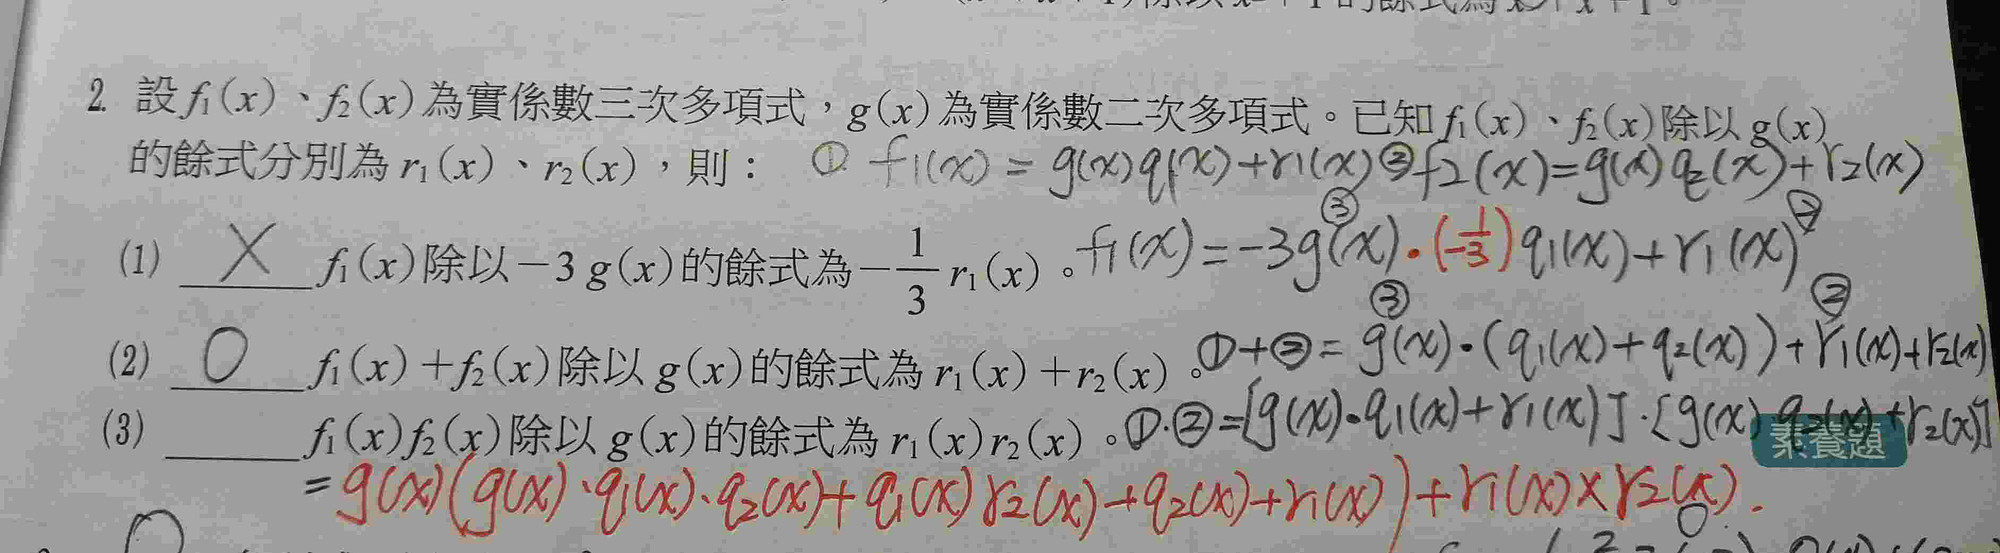 除以 x²+1 的餘式為 x
2. 設 f₁(x)、f₂(x) 為實係數三次多項式，g(x) 為實係數二次多項式。已知 f₁(x)、f₂(x) 除以 g(x)
的餘式分別為 r₁(x)、r₂(x)，則： ① f₁(x)=g(x)q₁(x)+r₁(x) ② f₂(x)=g(x)q₂(x)+r₂(x)
(1) X f₁(x) 除以 −3 g(x) 的餘式為 −1/3 r₁(x)。 f₁(x)=−3g(x)·(−1/3)q₁(x)+r₁(x)
③ ②
③ ②
(2) O f₁(x)+f₂(x) 除以 g(x) 的餘式為 r₁(x)+r₂(x)。 ①+②=g(x)·(q₁(x)+q₂(x))+r₁(x)+r₂(x)
(3) ____ f₁(x)f₂(x) 除以 g(x) 的餘式為 r₁(x)r₂(x)。 ①·②=[g(x)·q₁(x)+r₁(x)]·[g(x)q₂(x)+r₂(x)]
素養題
=g(x)(g(x)·q₁(x)·q₂(x)+q₁(x)r₂(x)+q₂(x)+r₁(x))+r₁(x)×r₂(x).